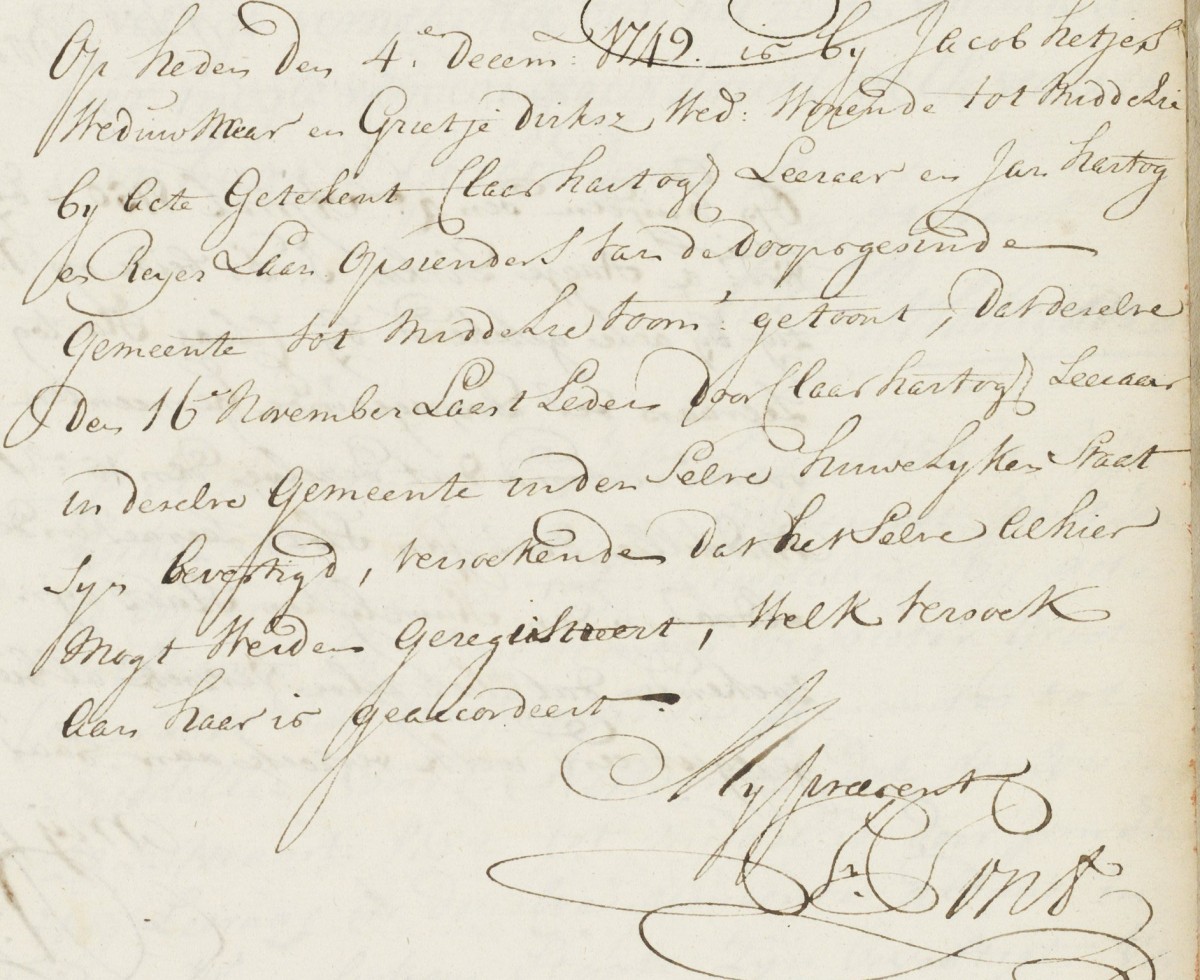 Op heden den 4.en Decem: 1749. is by Jacob hetjes
Weduwnaar en Grietje dirksz Wed: Wonende tot Middelie
by acte Getekent Claas hartog Leeraar en Jan hartog
en Reyer Laan Opsienders van de Doopsgesinde
Gemeente tot Middelie voorn: getoont, dat deselve
den 16e November Laast Leden door Claas hartog Leeraar
in deselve Gemeente in den Selve huwelyken Staat
syn bevestigd, versoekende dat het Selve alhier
Mogt Werden Geregistreert, Welk versoek
aan haar is geaccordeert.
My present